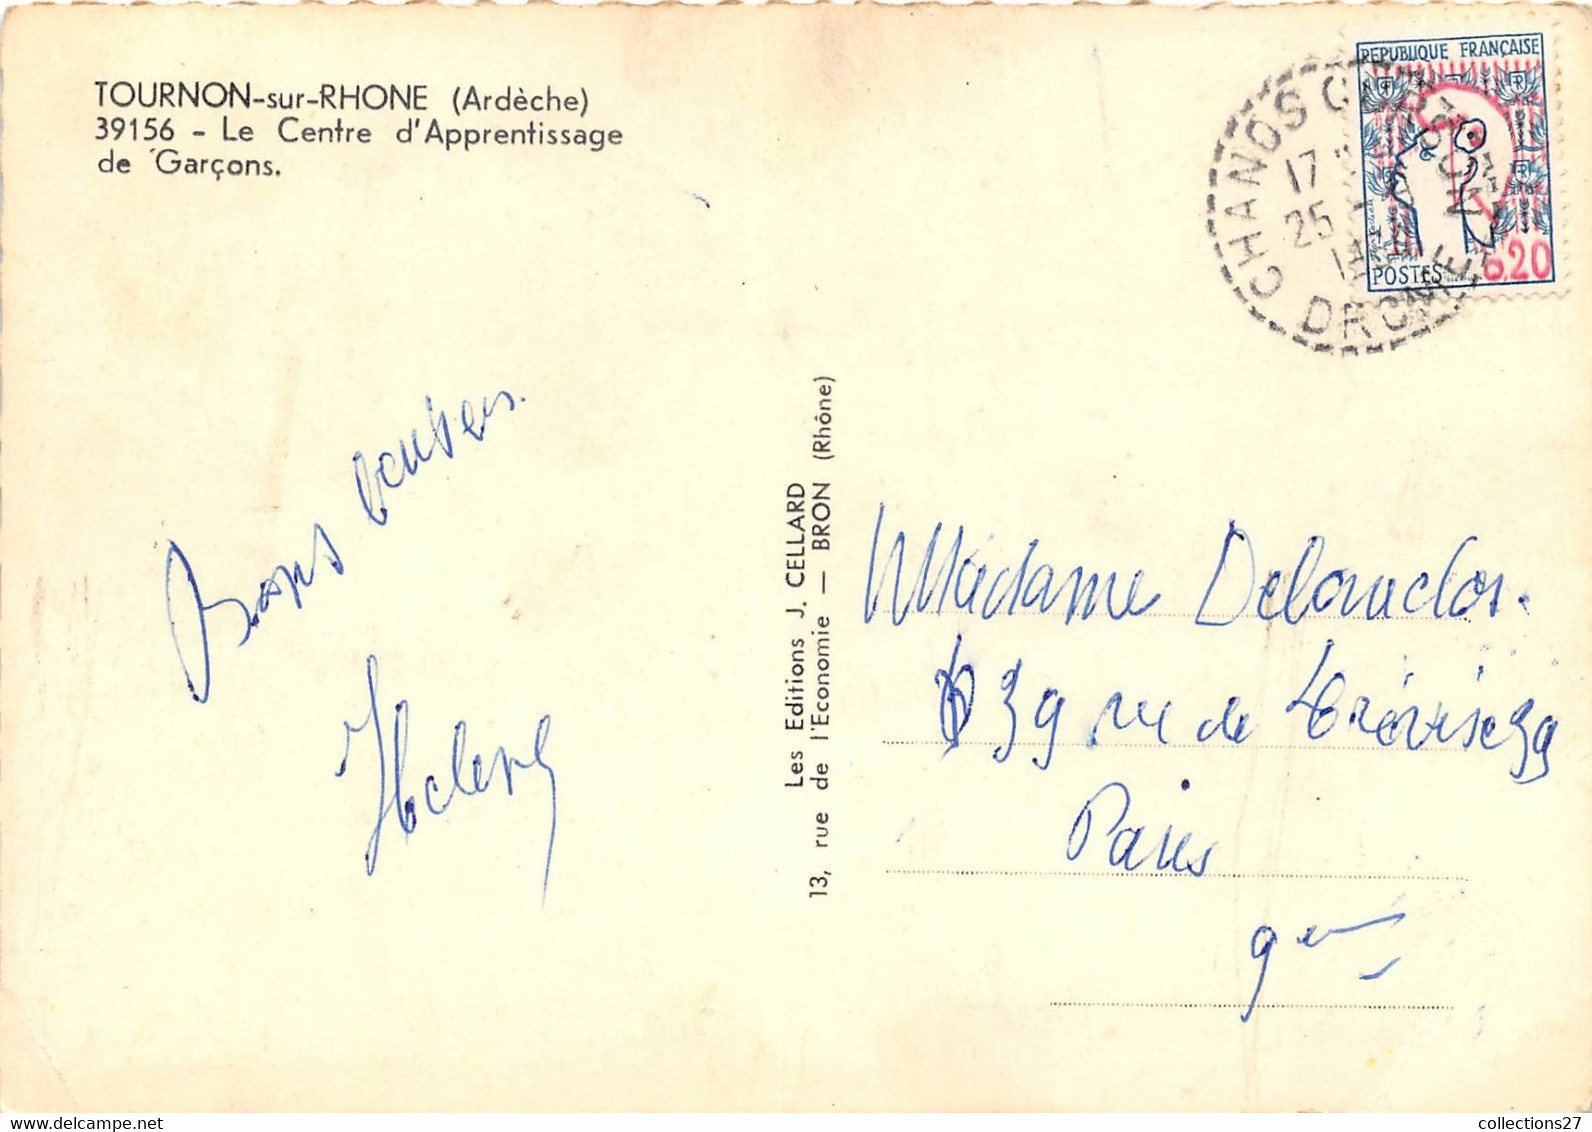 TOURNON-sur-RHONE (Ardèche)
39156 - Le Centre d'Apprentissage
de Garçons.
REPUBLIQUE FRANÇAISE
POSTES
0.20
CHANOS CURSON
17
25
DROME
Bons baisers.
Les Editions J. CELLARD
13, rue de l'Economie — BRON (Rhône)
Madame Delauclos.
39 rue de Trévise 39
Paris
9em
collections27